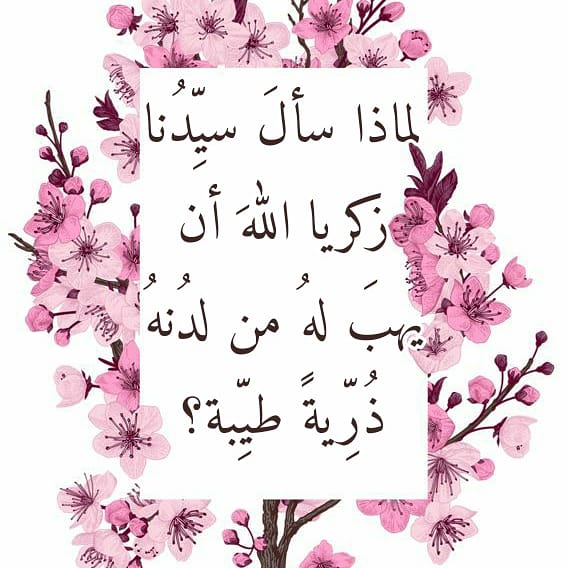 لماذا سألَ سيِّدُنا
زكريا اللهَ أن
يهبَ لهُ من لدُنهُ
ذُرِّيةً طيِّبة؟